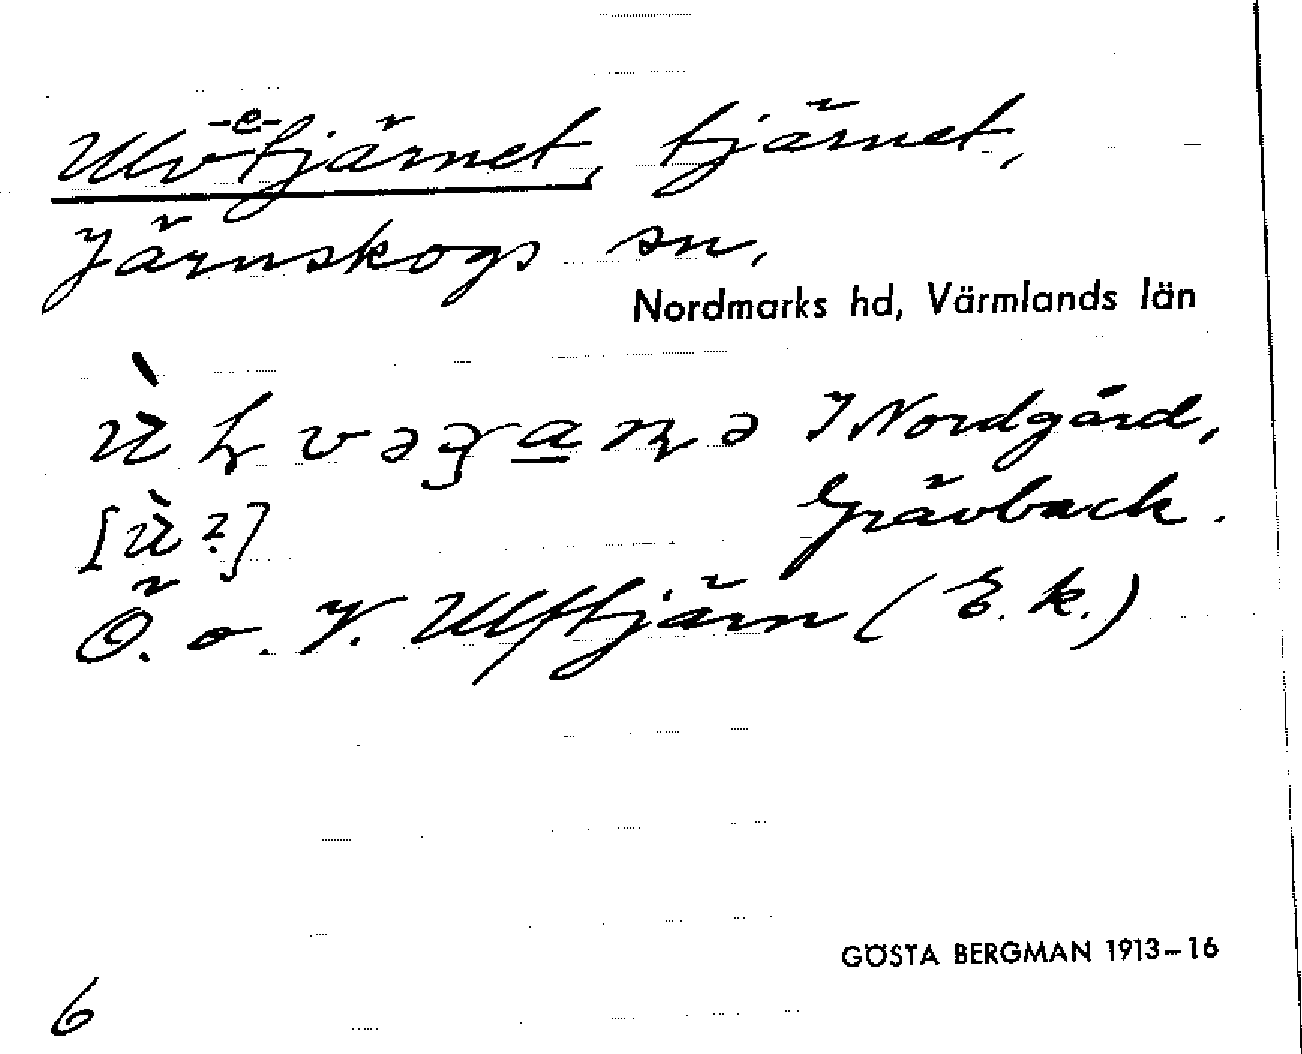 -e-
Ulvtjärnet, tjärnet,
Järnskogs sn,
Nordmarks hd, Värmlands län
I Nordgård,
[ù ?] Grävback.
Ö. o. V. Ulftjärn (E.k.)
GÖSTA BERGMAN 1913–16
6